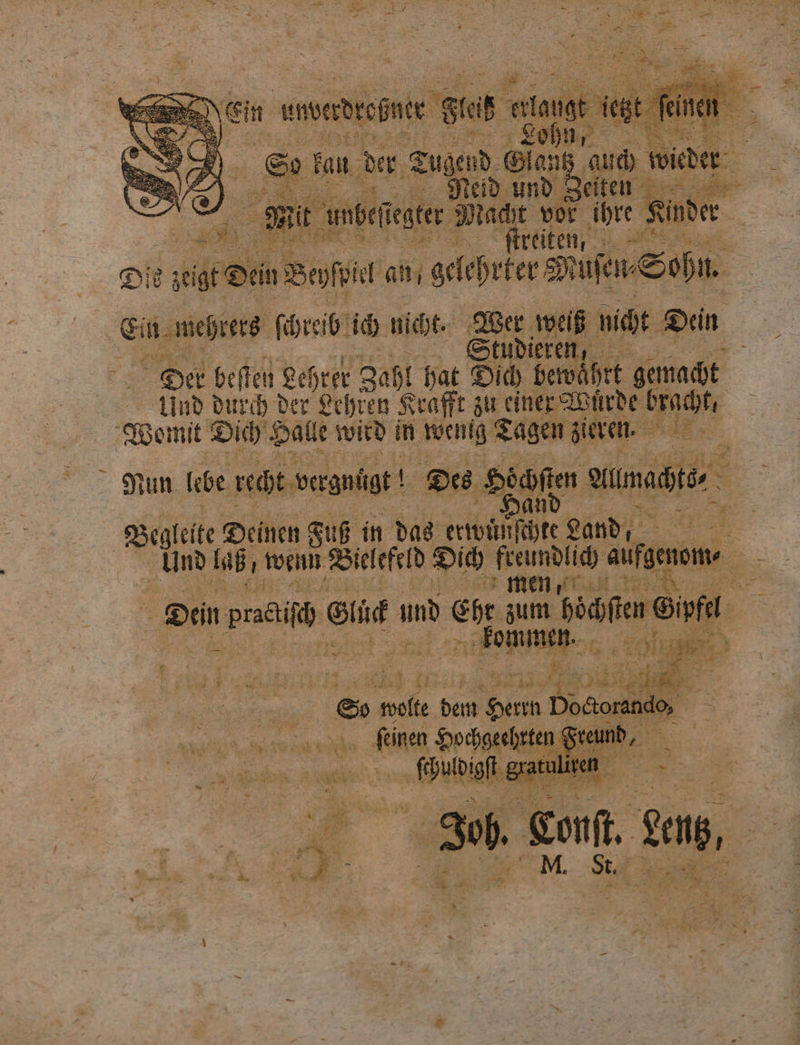 SEin unverdroßner Fleiß erlangt ietzt seinen
Lohn,
So kan der Tugend Glantz auch wieder
Neid und Zeiten
Mit unbesiegter Macht vor ihre Kinder
streiten,
Dis zeigt Dein Beyspiel an, gelehrter Musen-Sohn.
Ein mehrers schreib ich nicht. Wer weiß nicht Dein
Studieren,
Der besten Lehrer Zahl hat Dich bewährt gemacht
Und durch der Lehren Krafft zu einer Würde bracht,
Womit Dich Halle wird in wenig Tagen zieren.
Nun lebe recht vergnügt! Des Höchsten Allmachts-
Hand
Begleite Deinen Fuß in das erwünschte Land,
Und laß, wenn Bielefeld Dich freundlich aufgenom-
men,
Dein practisch Glück und Ehr zum höchsten Gipfel
kommen.
So wolte dem Herrn Doctorando,
seinen Hochgeehrten Freund,
schuldigst gratuliren
Joh. Const. Lentz,
M. St.